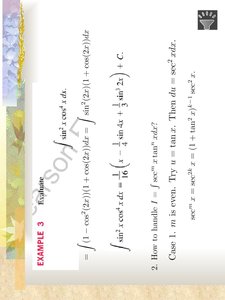 EXAMPLE 3 Evaluate
∫ sin² x cos⁴ x dx.
= ∫ (1 − cos²(2x))(1 + cos(2x))dx = ∫ sin²(2x)(1 + cos(2x))dx
∫ sin² x cos⁴ x dx = 1/16 (x − 1/4 sin 4x + 1/3 sin³ 2x) + C.
2. How to handle I = ∫ secᵐ x tanⁿ xdx?
Case 1. m is even. Try u = tan x. Then du = sec² xdx.
secᵐ x = sec²ᵏ x = (1 + tan² x)ᵏ⁻¹ sec² x.